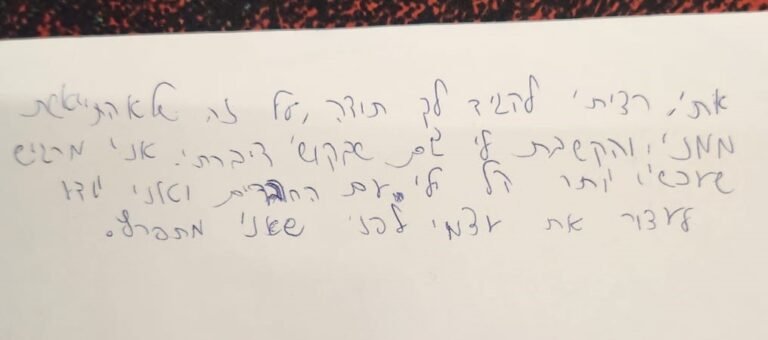 אתי, רציתי להגיד לך תודה, על זה שלא התייאשת
ממני, והקשבת לי גם שבקושי דיברתי. אני מרגיש
שעכשיו יותר קל לי עם החברים ואני יודע
לעצור את עצמי לפני שאני מתפרץ.